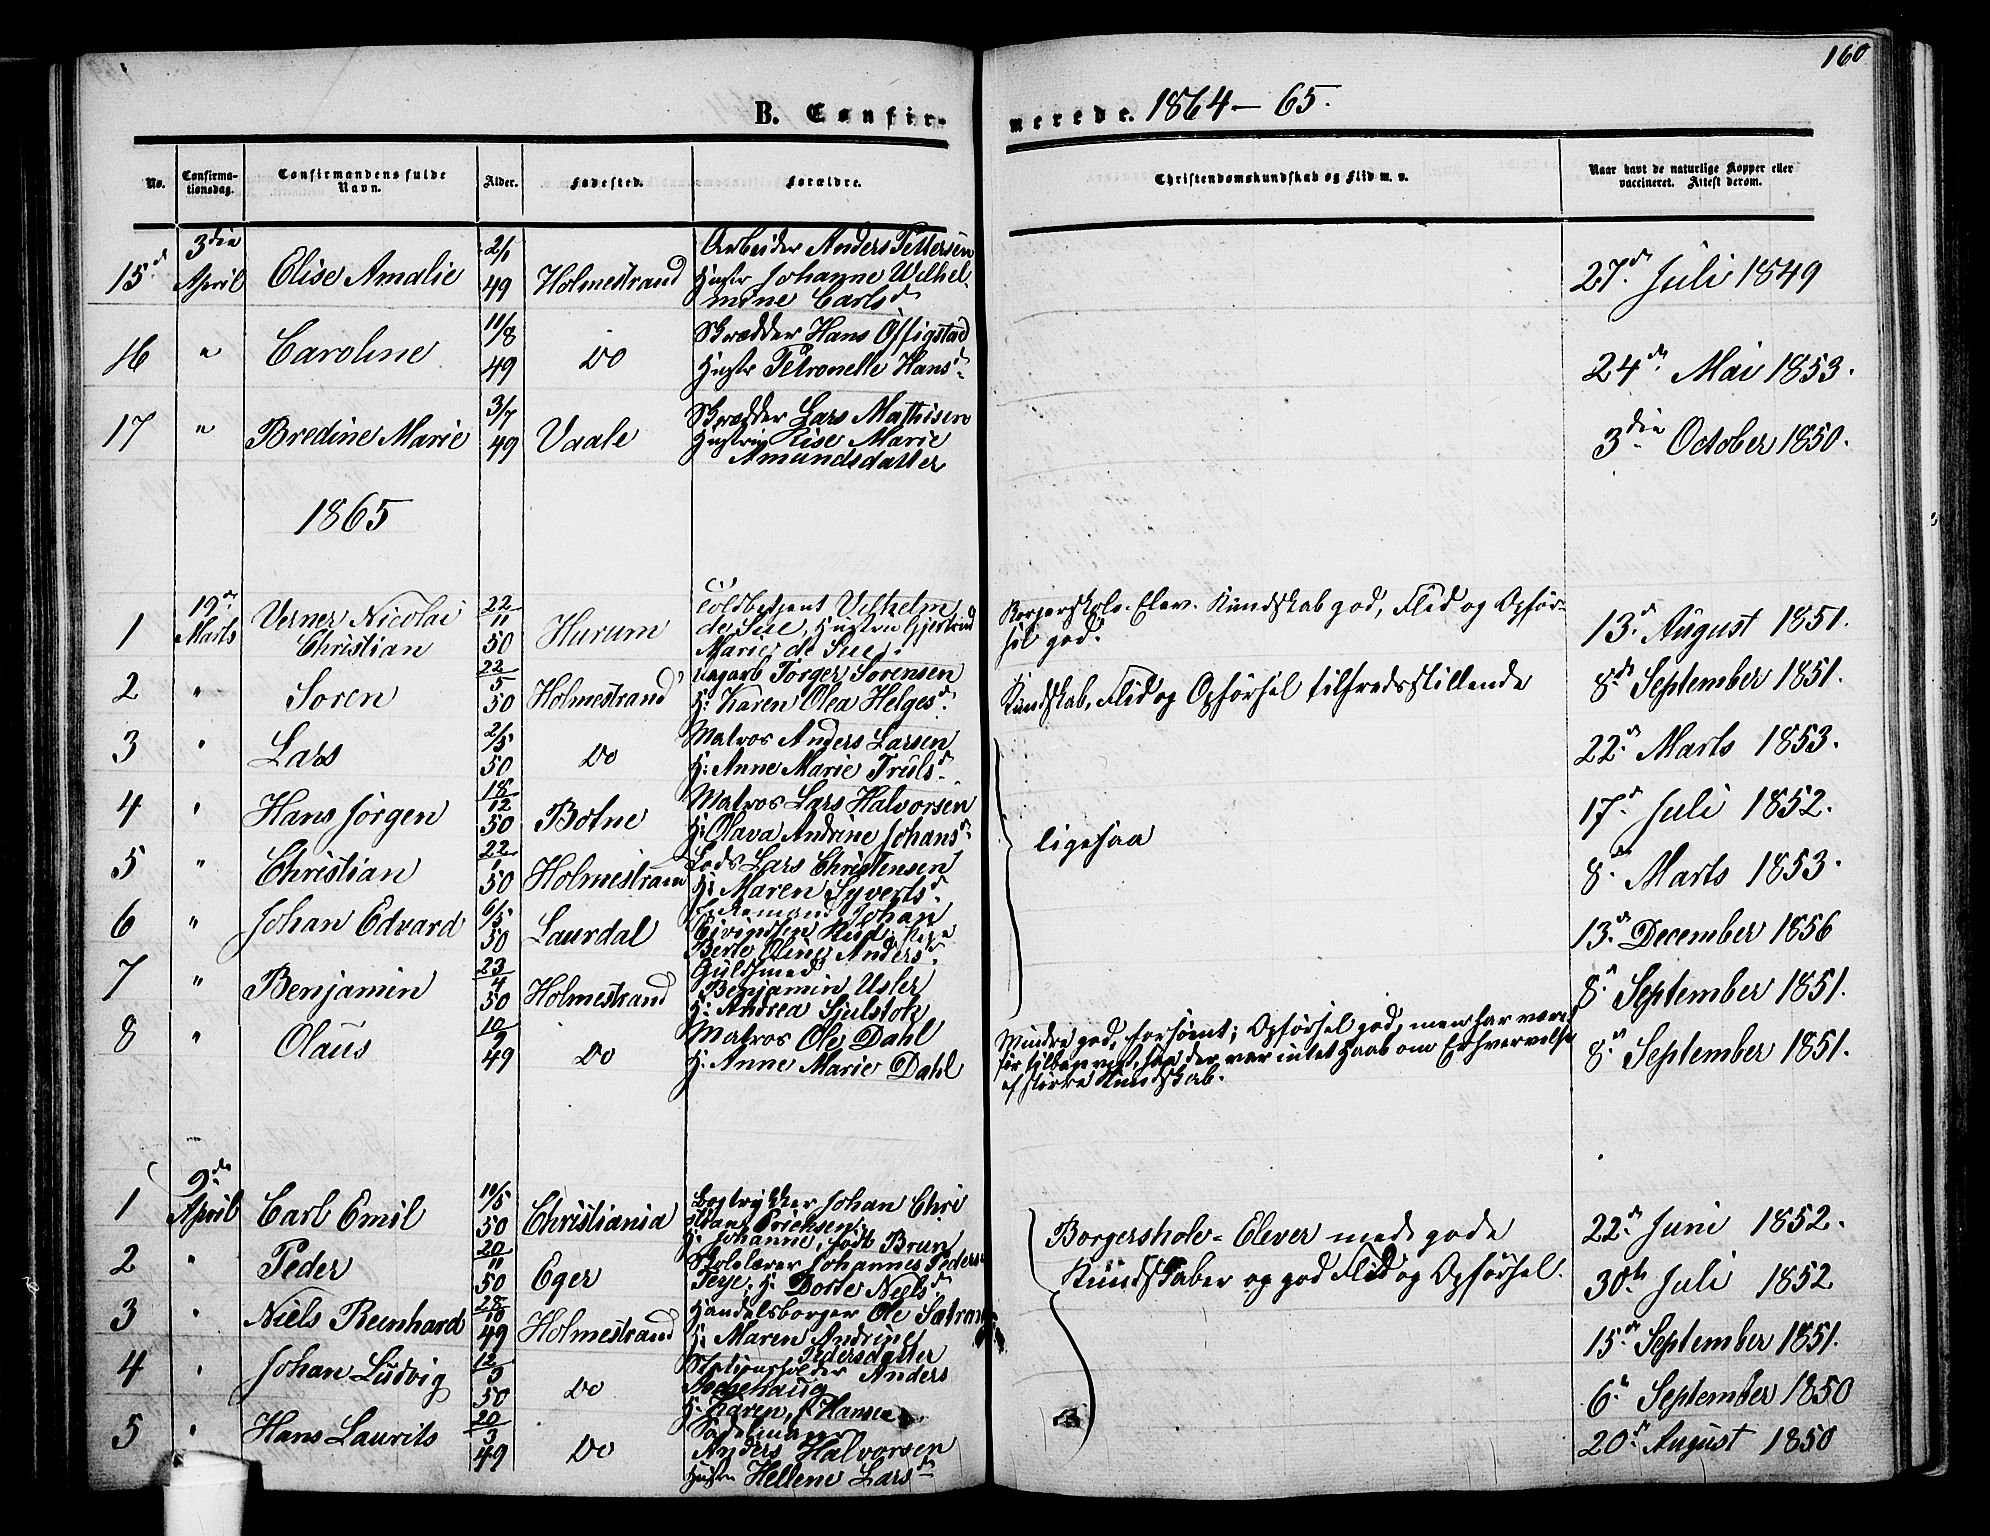 160
B. Confir-
merede. 1864 - 65.
No.
Confirma-
tionsdag.
Confirmandens fulde
Navn.
Alder.
Fødested.
Forældre.
Christendomskundskab og Flid m. v.
Naar havt de naturlige Kopper eller
vaccineret. Attest derom.
15 3die April Elise Amalie 2/1 49 Holmestrand Arbeider Anders Pettersen
Hustr Johanne Wilhel-
mine Carlsd 27d Juli 1849
16 " Caroline 11/8 49 Do Skrædder Hans Offigstad
Hustr Petronelle Hansd. 24d. Mai 1853.
17 " Bredine Marie 3/7 49 Vaale Skrædder Lars Mathisen
Hustru Lise Marie
Amundsdatter 3die October 1850.
1865
1 19d. Marts Verner Nicolai
Christian 22/11 50 Hurum Toldbetjent Vilhelm
de Sue, Hustru Gjertrud
Marie de Sue. Borgerskole-Elev. Kundskab god, Flid og Opfør-
sel god. 13d. August 1851.
2 " Soren 22/5 50 Holmestrand Ungarb Torger Sorensen
H: Karen Olea Helgesd. Kundskab, Flid og Opførsel tilfredsstillende 8d. September 1851.
3 " Lars 2/5 50 Do Matros Anders Larsen
H: Anne Marie Trulsd. 22d. Marts 1853.
4 " Hans Jörgen 18/12 50 Botne Matros Lars Halvorsen
H: Olava Andrine Johansd. ligesaa 17d Juli 1852.
5 " Christian 22/1 50 Holmestrand Lods Lars Christensen
H: Maren Syvertsd. 8d. Marts 1853.
6 " Johan Edvard 6/5 50 Laurdal Johan
Eivindsen
Berte Oline Andersd. 13d. December 1856
7 " Benjamin 23/4 50 Holmestrand Guldsmed
Benjamin Usler
H: Andrea Sjulstok 8d. September 1851.
8 " Olaus 10/9 49 Do Matros Ole Dahl
H: Anne Marie Dahl Mindre god, forsömt; Opførsel god, men har været
før tilbagevist, saa der var intet Haab om Erhvervelse
af större Kundskab. 8d. September 1851.
1 9de April Carl Emil 11/5 50 Christiania Bogtrykker Johan Chri
stian Erichsen
H. Johanne, födt Brun 22d. Juni 1852.
2 " Peder 20/11 50 Eger Skolelærer Johannes Peders
Teye; H: Dorte Nielsd Borgerskole-Elever med gode
Kundskaber og god Flid og Opførsel. 30te Juli 1852
3 " Niels Reinhard 28/10 49 Holmestrand Handelsborger Ole Sætrang
H: Maren Andrine
Pedersdatter 15d. September 1851.
4 " Johan Ludvig 12/9 50 Do Stationsholder Anders
Aschehaug
H: Karen, f Hansen 6d September 1850
5 " Hans Laurits 20/3 49 Do Sadelmager
Anders Halvorsen
Hustru Hellene Larsd 20d August 1850